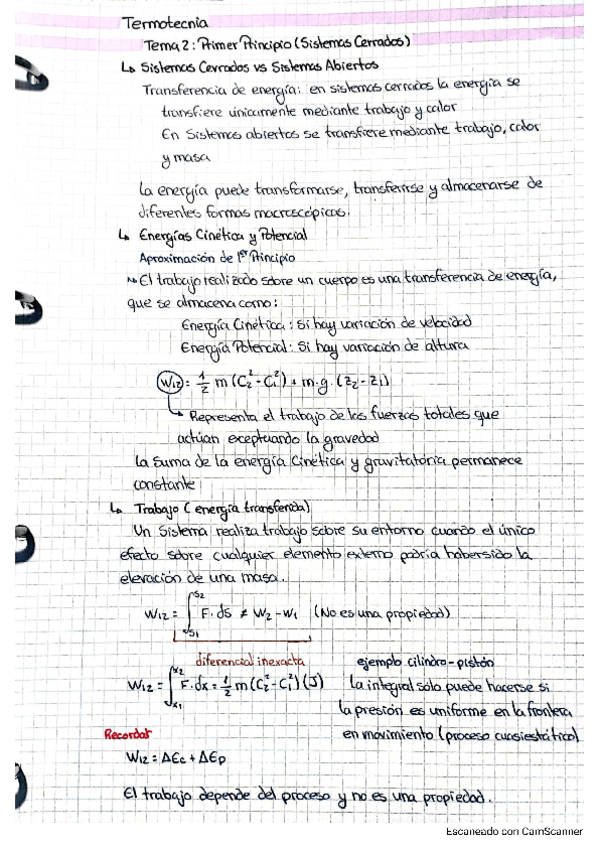 Termotecnia
Tema 2: Primer Principio (Sistemas Cerrados)
↳ Sistemas Cerrados vs Sistemas Abiertos
Transferencia de energía: en sistemas cerrados la energía se
transfiere únicamente mediante trabajo y calor
En Sistemas abiertos se transfiere mediante trabajo, calor
y masa
La energía puede transformarse, transferirse y almacenarse de
diferentes formas macroscópicas.
↳ Energías Cinética y Potencial
Aproximación de 1er Principio
El trabajo realizado sobre un cuerpo es una transferencia de energía,
que se almacena como:
Energía Cinética: Si hay variación de velocidad
Energía Potencial: Si hay variación de altura
W12 = 1/2 m (C2² - C1²) + m·g·(z2 - z1)
↳ Representa el trabajo de las fuerzas totales que
actúan exceptuando la gravedad
La suma de la energía Cinética y gravitatoria permanece
constante
↳ Trabajo (energía transferida)
Un Sistema realiza trabajo sobre su entorno cuando el único
efecto sobre cualquier elemento externo podría haber sido la
elevación de una masa.
W12 = ∫S1^S2 F·ds ≠ W2 - W1 (No es una propiedad)
diferencial inexacta
ejemplo cilindro-pistón
W12 = ∫x1^x2 F·dx = 1/2 m (C2² - C1²) (J)
la integral sólo puede hacerse si
la presión es uniforme en la frontera
en movimiento (proceso cuasiestático)
Recordar
W12 = ΔEc + ΔEp
El trabajo depende del proceso y no es una propiedad.
Escaneado con CamScanner